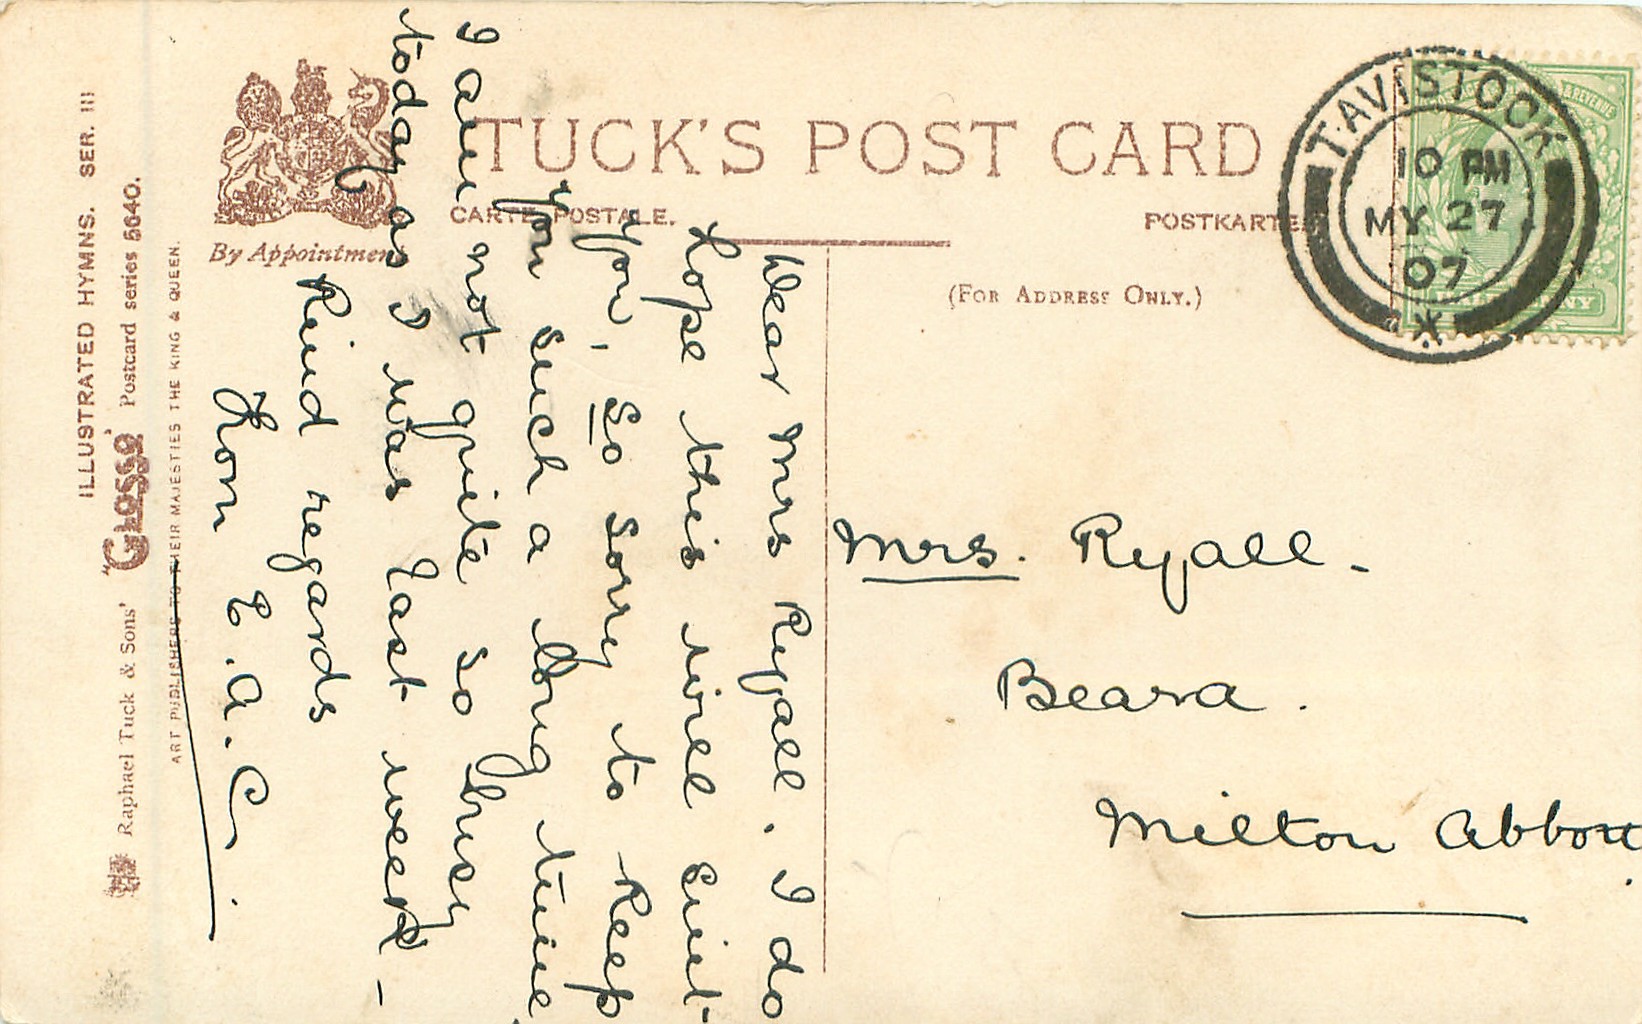 ILLUSTRATED HYMNS. SER. III
Raphael Tuck & Sons' "Glosso" Postcard series 5640.
ART PUBLISHERS TO THEIR MAJESTIES THE KING & QUEEN.
By Appointment
TUCK'S POST CARD
CARTE POSTALE.
POSTKARTE
(FOR ADDRESS ONLY.)
TAVISTOCK
10 PM
MY 27
07
& REVENUE
Dear Mrs Ryall. I do
hope this will suit
you, So sorry to keep
you such a long time,
I am not quite so busy
today as I was last week -
Kind regards
from E.A.C.
Mrs. Ryall -
Beara.
Milton Abbott